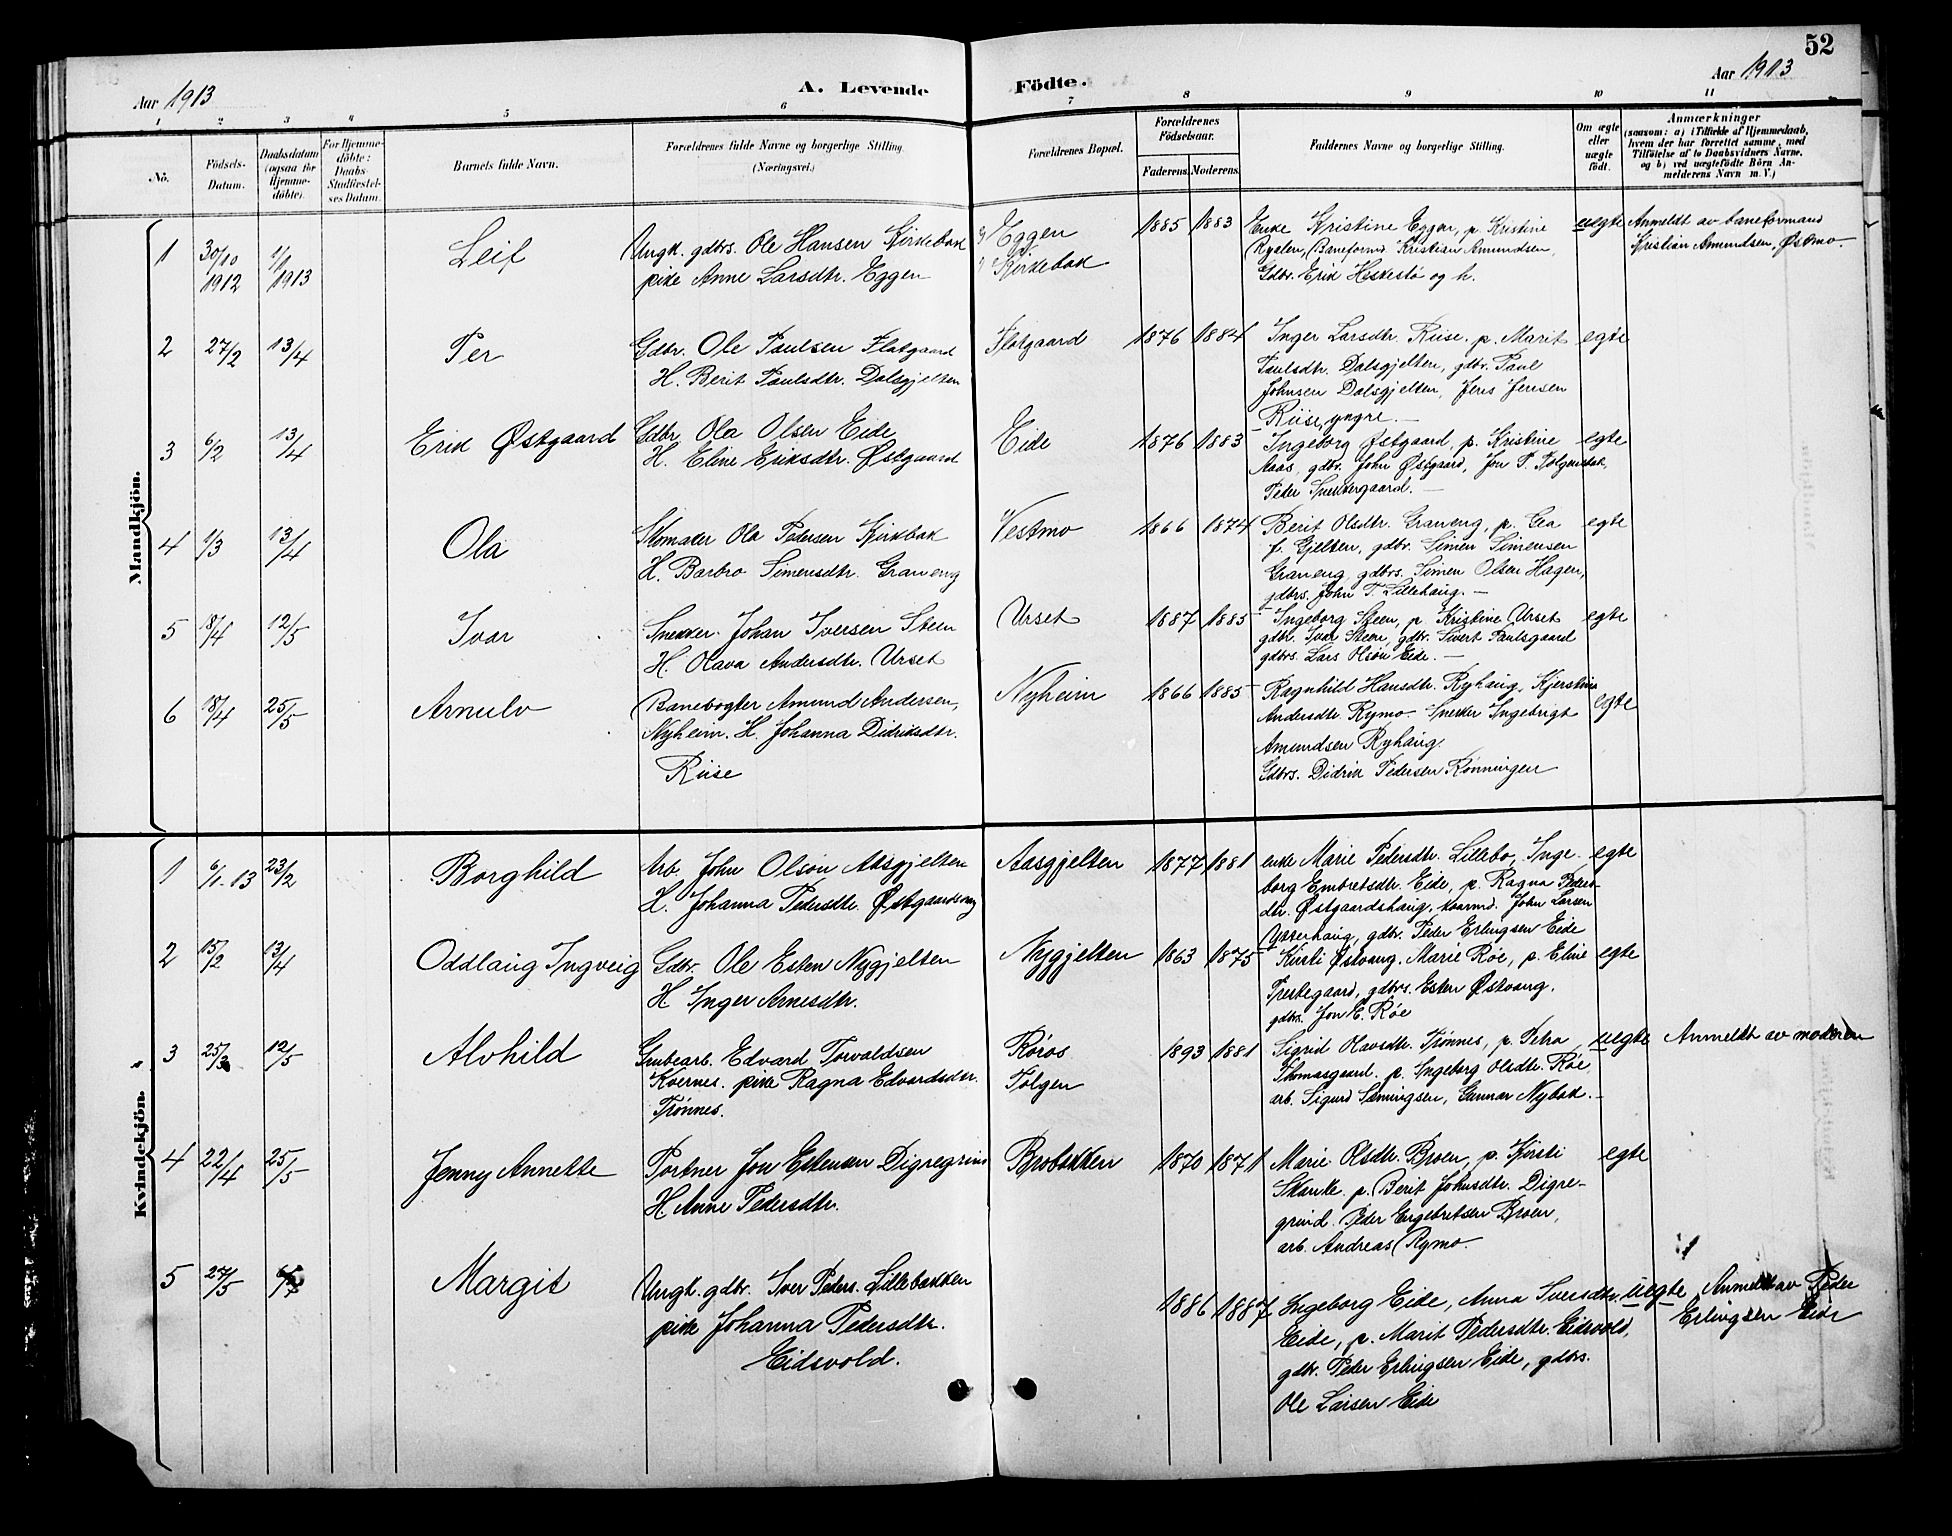 52
Aar 1913
A. Levende Födte.
Aar 1913
1 2 3 4 5 6 7 8 9 10 11
No.
Födsels-
Datum.
Daabsdatum
(ogsaa for
Hjemme-
döbte).
For Hjemme-
döbte:
Daabs-
Stadfæstel-
ses Datum.
Barnets fulde Navn.
Forældrenes fulde Navne og borgerlige Stilling
(Næringsvei.)
Forældrenes Bopæl.
Forældrenes
Födselsaar.
Faderens. Moderens.
Faddernes Navne og borgerlige Stilling.
Om ægte
eller
uægte
födt.
Anmærkninger
(saasom: a) i Tilfælde af Hjemmedaab,
hvem der har forrettet samme, med
Tilföielse af to Daabsvidners Navne,
og b) ved uægtefödte Börn An-
melderens Navn m. V.)
Mandkjön.
1 30/10 1912 1/1 1913 Leif
Ungk. gdbrs. Ole Hansen Kirkebak
pike Anne Larsdtr. Eggen
Eggen
Kirkebak
1885 1883
Enke Kristine Eggen, p. Kristine
Ryalen, Baneformd. Kristian Amundsen,
Gdbr. Erik Heskestø og h.
uegte
Anmeldt av baneformand
Kristian Amundsen, Østmo.
2 27/2 13/4 Per
Gdbr. Ole Paulsen Flatgaard
H. Berit Paulsdtr. Dalsgjelten
Flatgaard
1876 1884
Inger Larsdtr. Riise. p. Marit
Paulsdtr. Dalsgjelten, gdbr. Paul
Johnsen Dalsgjelten, Jens Jensen
Riise, yngre.
egte
3 6/2 13/4 Erik Østgaard
Gdbr. Ola Olsen Eide
H. Eline Eriksdtr. Østgaard
Eide
1876 1883
Ingeborg Østgaard, p. Kristine
Aaas, gdbr. John Østgaard, Jon P. Kolgenbak,
Peder Snekkergaard.
egte
4 1/3 13/4 Ola
Skomaker Ola Pedersen Kirkbak
H. Barbro Simensdtr. Graneng
Vestmo
1866 1874
Berit Olsdtr. Graneng, p. Gea
f. Gjelten, gdbr. Simen Simensen
Graneng, gdbrs. Simen Olsen Hagen,
gdbrs. John T. Lillehaug.
egte
5 18/4 12/5 Ivar
Snekker. Johan Iversen Steen
H. Olava Andersdtr. Urset
Urset
1887 1885
Ingeborg Steen, p Kristine Urset
gdbr. Ivar Steen, gdbr. Sivert Paulsgaard
gdbrs. Lars Olsøn Eide.
egte
6 18/4 25/5 Arnulv
Banevogter Amund Andersen,
Nyheim. H. Johanna Didriksdtr.
Riise
Nyheim
1866 1885
Ragnhild Hansdtr. Ryhaug, Kjerstine
Andersdtr. Rymo. Snekker Ingebrigt
Amundsen Ryhaug.
Gdbrs. Didrik Pedersen Rønningen
egte
Kvindekjön.
1 6/1-13 23/2 Borghild
Arb. John Olson Aasgjelten
H. Johanna Pedersdtr. Østgaardshaug
Aasgjelten
1877 1881
enke Marie Pedersdtr. Lillebo, Inge-
borg Embretsdtr. Eide, p. Ragna Peders-
dtr. Østgaardshaug, John Larsen
Ytterhaug, gdbr. Peder Erlingsen Eide
egte
2 15/2 13/4 Oddlaug Ingveig
Gdbr. Ole Esten Nygjelten
H. Inger Arnesdtr.
Nygjelten
1863 1875
Kirsti Østvang. Marie Røe, p. Eline
Prestegaard, gdbrs. Esten Østvang.
gdbrs. Jon E. Røe
egte
3 25/3 12/5 Alvhild
Grubearb. Edvard Torvaldsen
Kvernes. pike Ragna Edvardsdtr.
Trønnes.
Røros
Tolgen
1893 1881
Sigrid Olavsdtr. Trønnes, p. Petra
Thomasgaard. p. Ingeborg Olsdtr. Røe
arb. Sigurd Semingsen, Gunnar Nybak.
uegte
Anmeldt av moderen
4 22/4 25/5 Jenny Annette
Portner Jon Estensen Digregrind
H. Anne Pedersdtr.
Brobakken
1870 1871
Marie Olsdtr. Broen, p. Kirsti
Skanke. p. Berit Johnsdtr. Digre-
grind. Peder Engebretsen Broen,
arb. Andreas Rymo.
egte
5 27/5 Margit
Ungk. gdbr. Iver Peders. Lillebakken
pike Johanna Pedersdtr.
Eidsvold.
1886 1887
Ingeborg Eide, Anna Iversdtr.
Eide, p. Marit Pedersdtr. Eidsvold,
gdbr. Peder Erlingsen Eide, gdbrs.
Ole Larsen Eide
uegte
Anmeldt av Peder
Erlingsen Eide